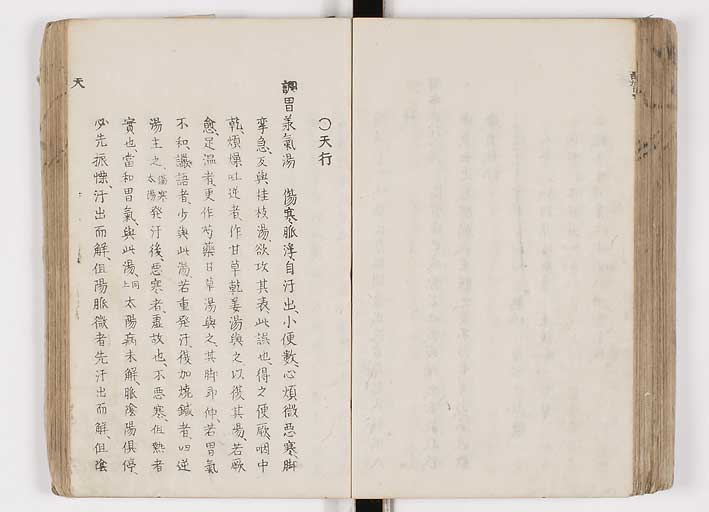 ○天行
調胃承氣湯　傷寒、脈浮、自汗出、小便數、心煩微惡寒、脚
攣急、反與桂枝湯、欲攻其表、此誤也、得之便厥、咽中
乾、煩燥吐逆者、作甘草乾姜湯與之、以復其陽、若厥
愈、足溫者、更作芍藥甘草湯與之、其脚即伸、若胃氣
不和、讝語者、少與此湯、若重発汗、復加燒鍼者、四逆
湯主之、傷寒太陽発汗後、惡寒者、虛故也、不惡寒、但熱者
實也、當和胃氣、與此湯、同上太陽病未解、脈陰陽俱停、
必先振慄、汗出而解、但陽脈微者、先汗出而解、但陰
天